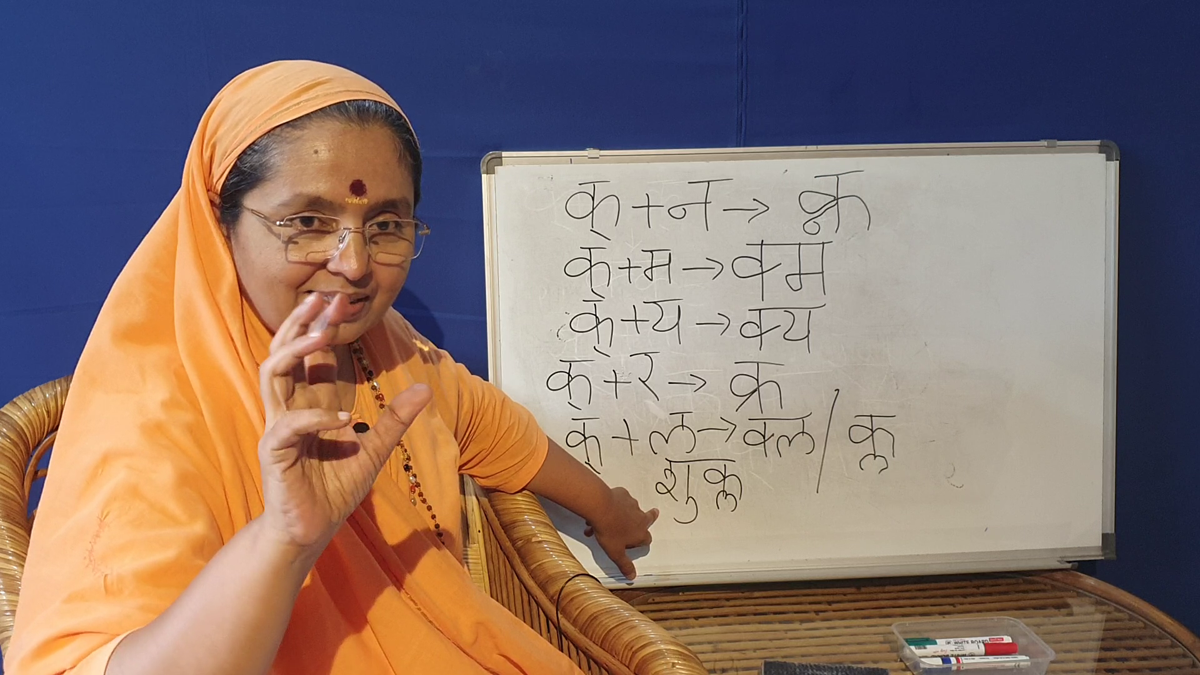 क् + न → क्न
क् + म → क्म
क् + य → क्य
क् + र → क्र
क् + ल → क्ल / क्ल
शुक्ल